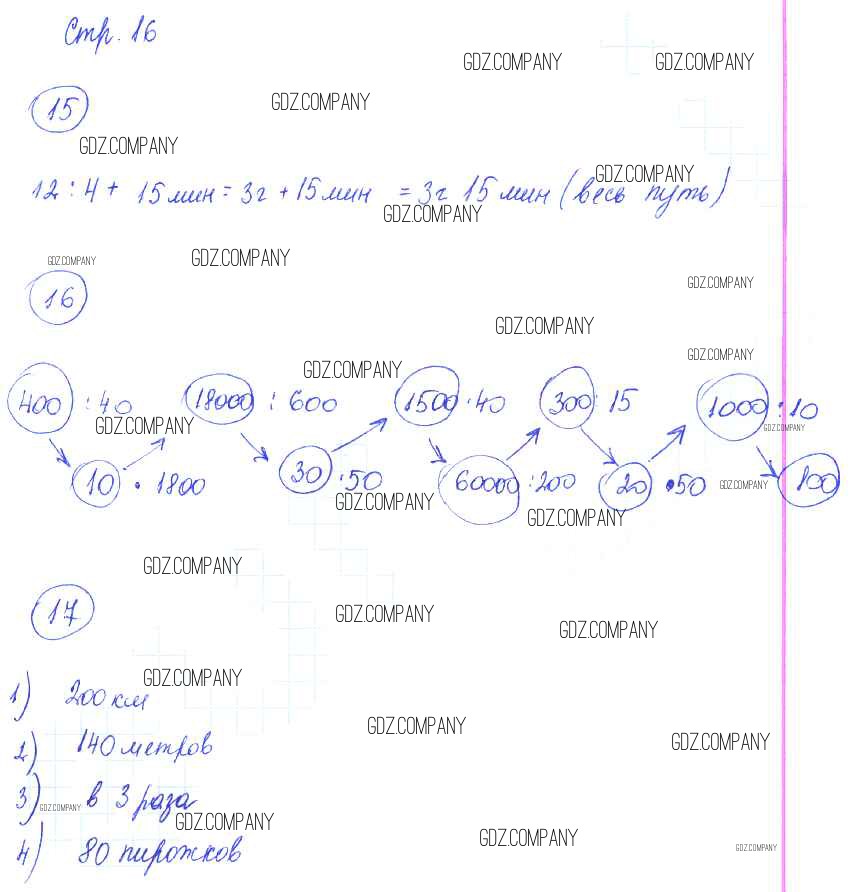 Стр. 16
GDZ.COMPANY GDZ.COMPANY
GDZ.COMPANY
15
GDZ.COMPANY
GDZ.COMPANY
12 : 4 + 15 мин = 3г + 15 мин = 3г 15 мин (весь путь)
GDZ.COMPANY
GDZ.COMPANY GDZ.COMPANY
GDZ.COMPANY
16
GDZ.COMPANY
GDZ.COMPANY
GDZ.COMPANY
400 : 40 18000 : 600 1500 · 40 300 : 15 1000 : 10
GDZ.COMPANY GDZ.COMPANY
10 · 1800 30 · 50 60000 : 200 20 · 50 100
GDZ.COMPANY
GDZ.COMPANY
GDZ.COMPANY
GDZ.COMPANY
17
GDZ.COMPANY
GDZ.COMPANY
GDZ.COMPANY
1) 200 км
GDZ.COMPANY
2) 140 метров
GDZ.COMPANY
3) в 3 раза
GDZ.COMPANY
GDZ.COMPANY
GDZ.COMPANY
4) 80 пирожков
GDZ.COMPANY